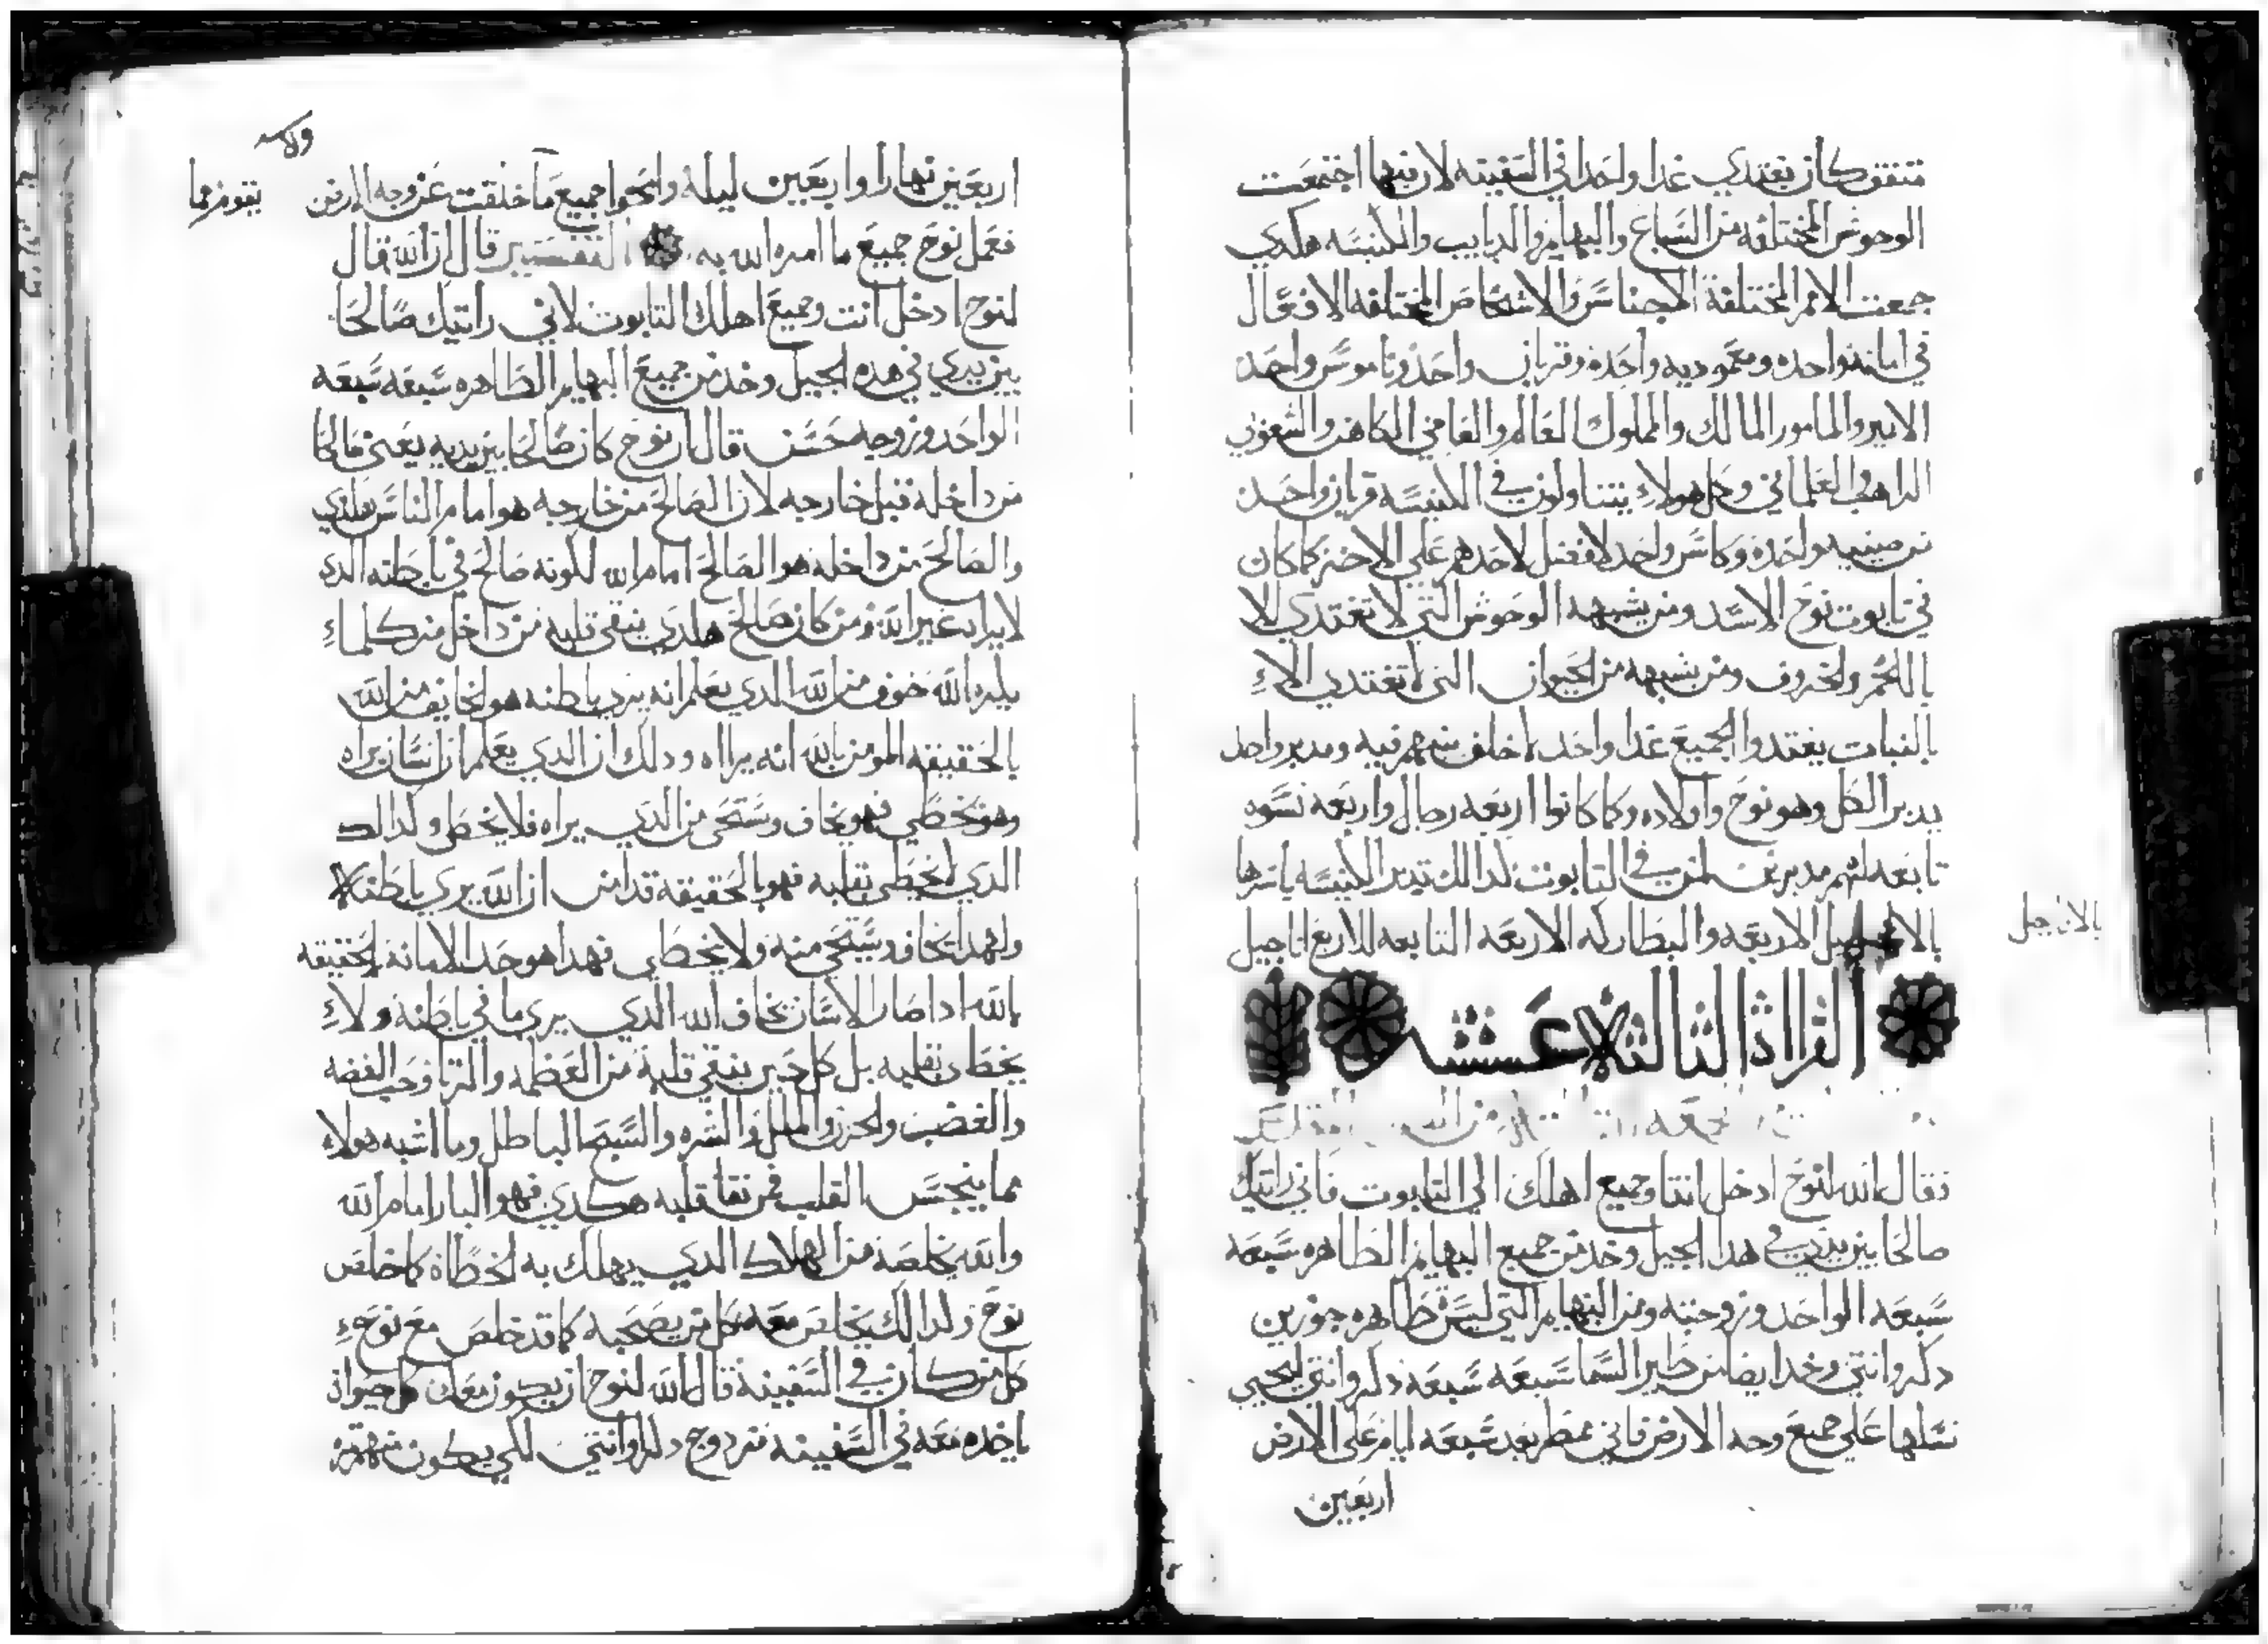 متفق كان يغتدي غدا واحدا في السفينه لان فيها اجتمعت
الوحوش المختلفه من السباع والبهايم والدبايب والكنيسه هكدي
جمعت الامم المختلفة الاجناس والاشخاص المختلفه الافعال
في امانه واحده ومعموديه واحده وقربان واحد وناموس واحد
الامير والمامور المالك والمملوك العالم والعامي الكاهن والشعوبي
الراهب العلماني وكل هولاء يتناولون في الكنيسه قربان واحد
من صينيه واحده وكاس واحد لا فضل لاحدهم علي الاخر كما كان
في تابوت نوح الاسد ومن يشبهه الوحوش التي لا تغتدي الا
باللحم والخروف ومن يشبهه من الحيوان التي لا تغتدي الا
بالنبات يغتدوا الجميع غدا واحد لا خلف بينهم فيه ومدبر واحد
يدبر الكل وهو نوح واولاده وكما كانوا اربعه رجال واربعه نسوه
تابعه لهم مدبرين لمن في التابوت لدالك تدبر الكنيسه باسرها
بالاناجيل الاربعه والبطاركه الاربعه التابعه للاربع اناجيل
بالاناجيل
القرااة الثالثة عشر
فقال الله لنوح ادخل انتا وجميع اهلك الي التابوت فاني رايتك
صالحا بين يدي في هدا الجيل وخد من جميع البهايم الطاهره سبعه
سبعه الواحد وزوجته ومن البهايم التي ليس طاهره جوزين
دكر وانتي وخد ايضا من طير السما سبعه سبعه دكر وانتي ليحيي
نسلها علي جميع وجه الارض فاني ممطر بعد سبعه ايام علي الارض
اربعين
اربعين نهارا واربعين ليله وامحوا جميع ما خلقت عن وجه الارض
يقوم مما
فعمل نوح جميع ما امره الله به التفسير قال ان الله قال
لنوح ادخل انت وجميع اهلك التابوت لاني رايتك صالحا
بين يدي في هده الجيل وخد من جميع البهايم الطاهره سبعه سبعه
الواحد وزوجه حسن قال ان نوح كان صالحا بين يديه يعني صالحا
من داخله قبل خارجه لان الصالح من خارجه هو امام الناس هكدي
والصالح من داخله هو الصالح امام الله لكونه صالح في باطنه الدي
لا يراه غير الله ومن كان صالح هكدي ينقي قلبه من داخل من كلما
يكره الله خوف من الله الدي يعلم انه يري باطنه هو الخايف من الله
بالحقيقه المومن بالله انه يراه ودلك ان الدي يعلم ان انسان يراه
وهو يخطي فهو يخاف ويستحي من الدي يراه فلا يخطي ولدالك
الدي لا يخطي بقلبه فهو بالحقيقه قد امن ان الله يري باطنه
ولهدا يخاف ويستحي منه ولا يخطي فهدا هو حد الامانة الحقيقه
بالله ادا صار الانسان يخاف الله الدي يري ما في باطنه ولا
يخطي بقلبه بل كل حين ينقي قلبه من العظمه والزنا وحب الفضه
والغضب والحزن والملل والشره والسبح الباطل وما اشبه هولاء
مما ينجس القلب فمن نقا قلبه هكدي فهو البار امام الله
والله يخلصه من الهلاك الدي يهلك به الخطاة كما خلص
نوح ولدالك يخلص معه كل من يصحبه كما قد خلص مع نوح
كل من كان في السفينة قال الله لنوح ان يكون معك كل حيوان
ياخده معه في السفينه من زوج دكر وانتي لكي يكون منهم